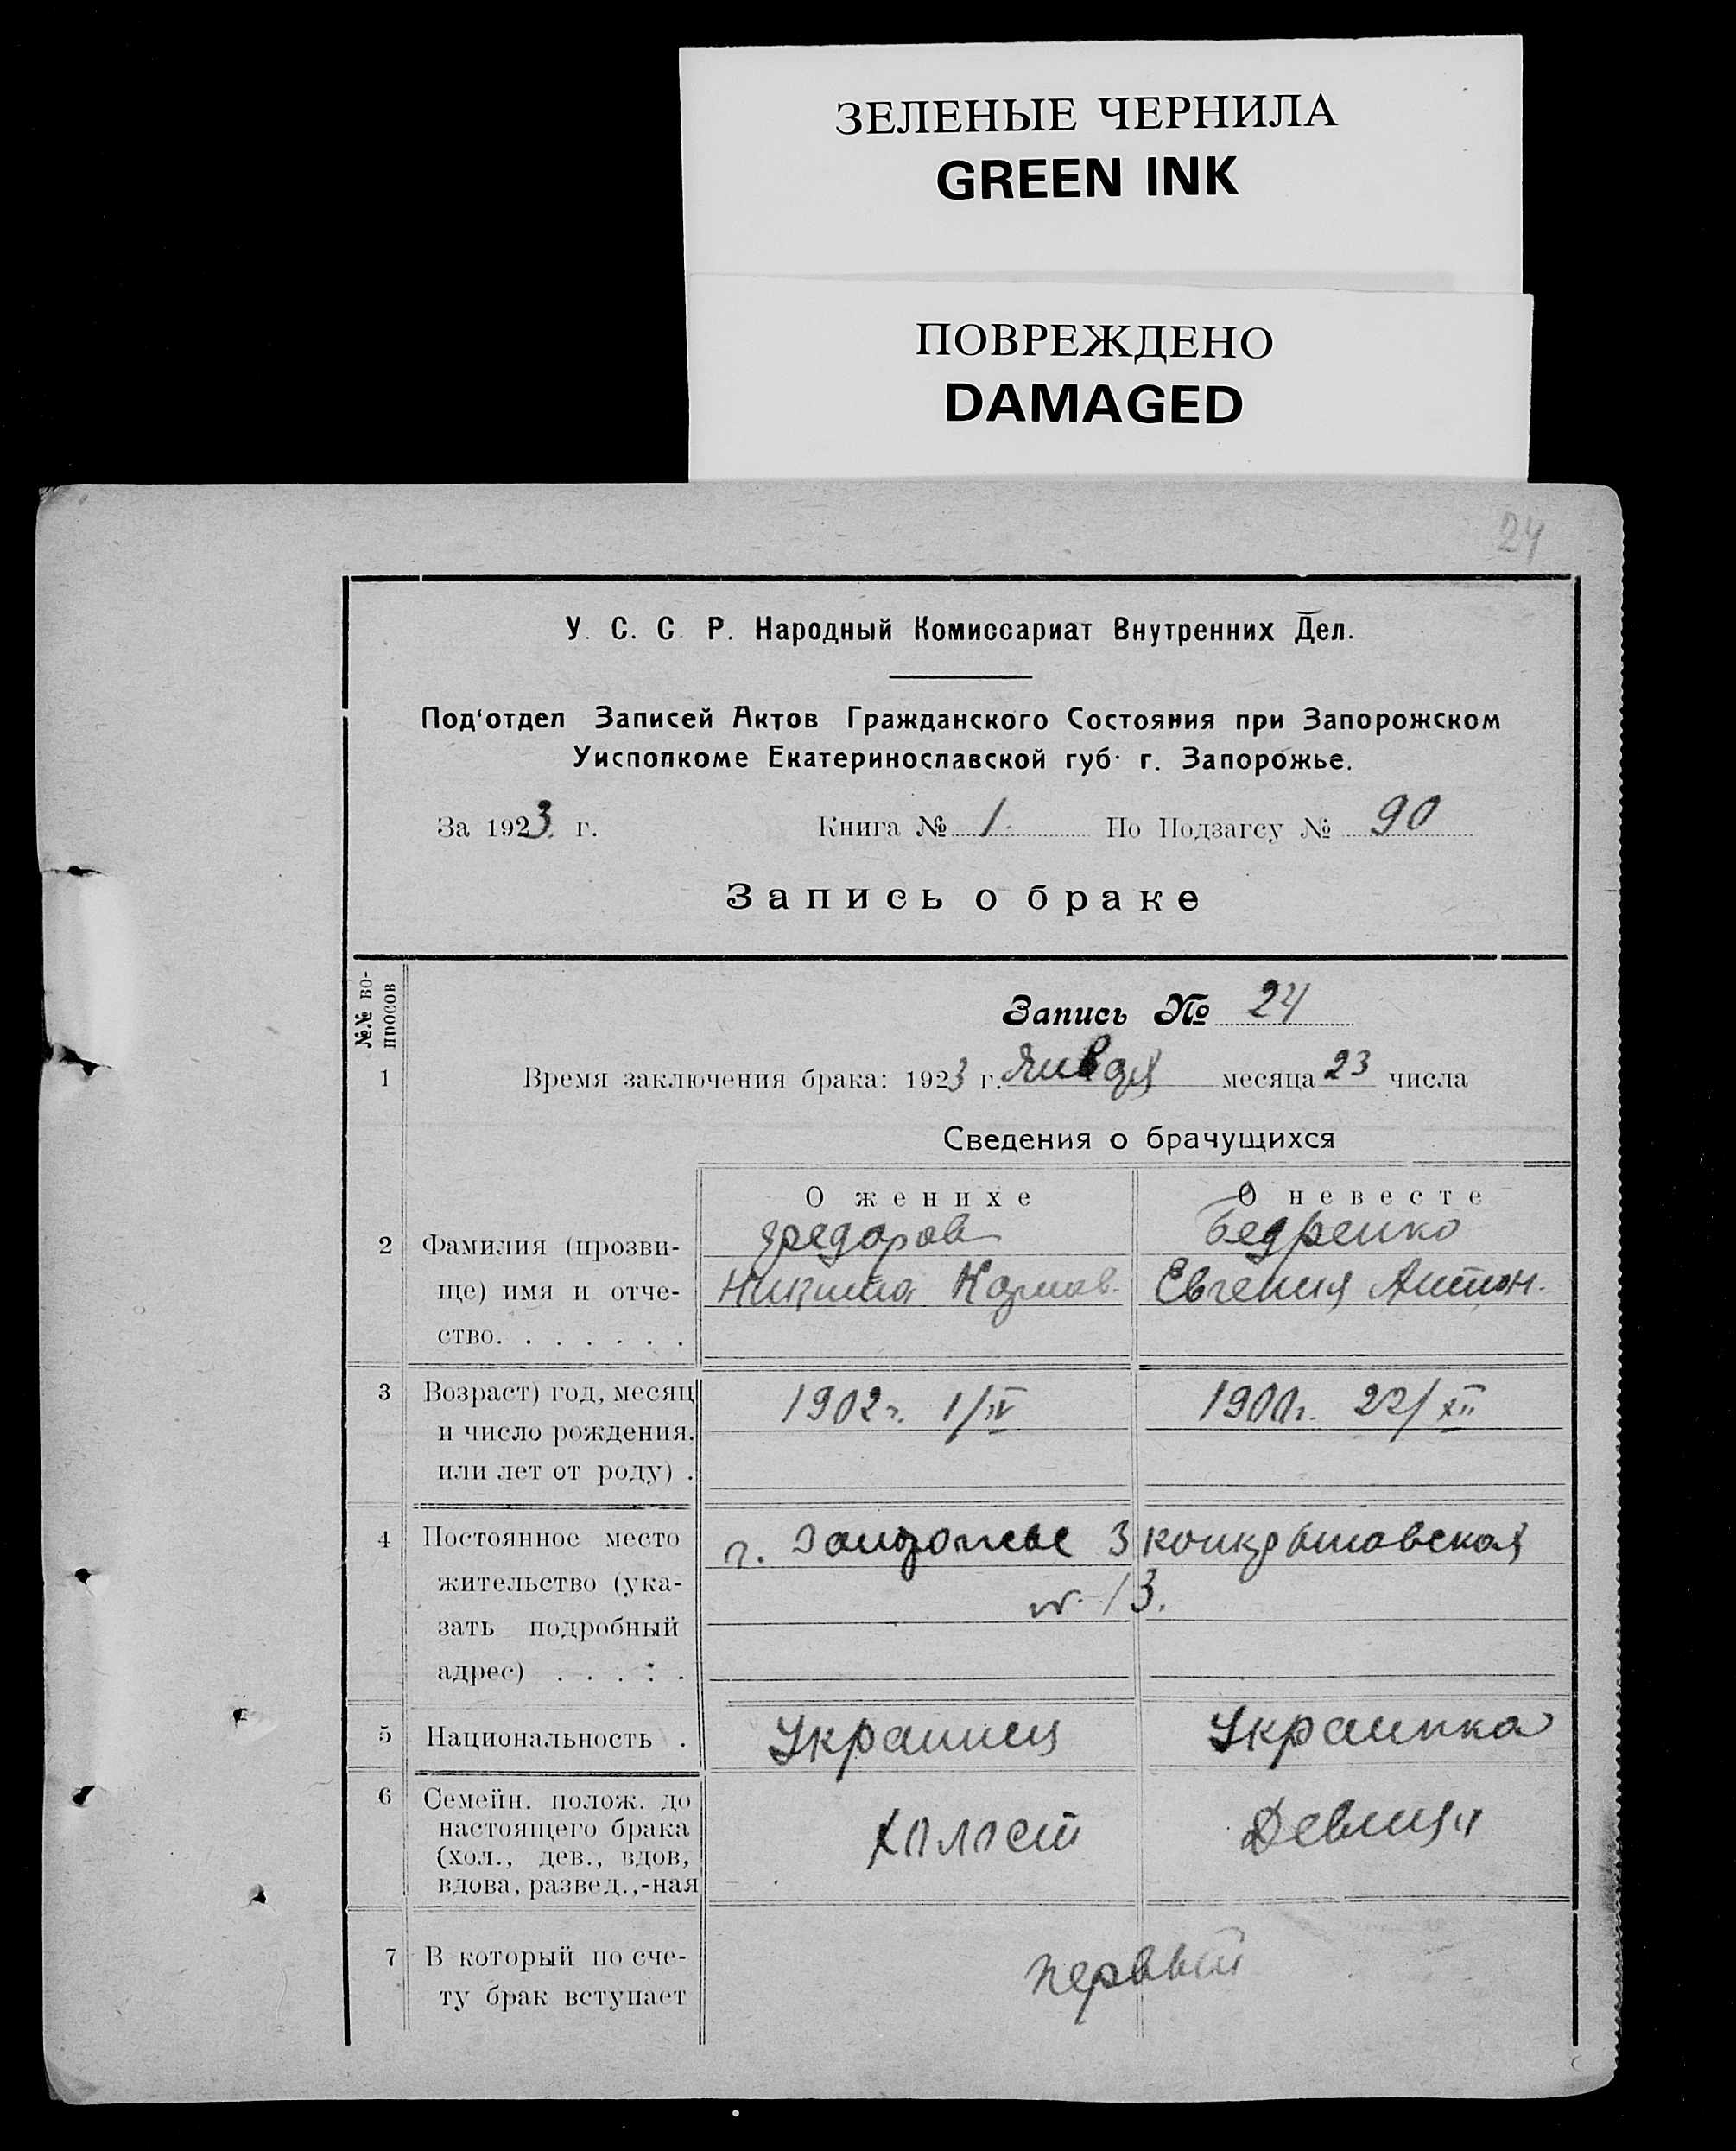 ЗЕЛЕНЫЕ ЧЕРНИЛА
GREEN INK
ПОВРЕЖДЕНО
DAMAGED
24
У. С. С. Р. Народный Комиссариат Внутренних Дел.
Под‘отдел Записей Актов Гражданского Состояния при Запорожском
Уисполкоме Екатеринославской губ. г. Запорожье.
За 1923 г. Книга № 1. По Подзагсу № 90
Запись о браке
№№ во-
просов
Запись № 24
1 Время заключения брака: 1923 г. Января месяца 23 числа
Сведения о брачущихся
О женихе О невесте
2 Фамилия (прозви- Федоров Бедренко
ще) имя и отче- Никита Евгения Антон.
ство. . . . . . .
3 Возраст) год, месяц 1902 г. 1/IV 1900 г. 22/XII
и число рождения.
или лет от роду) .
4 Постоянное место г. Запорожье
жительство (ука- 13.
зать подробный
адрес) . . . . .
5 Национальность . Украинец Украинка
6 Семейн. полож. до
настоящего брака Холост Девица
(хол., дев., вдов,
вдова, развед.,-ная
7 В который по сче- первый
ту брак вступает